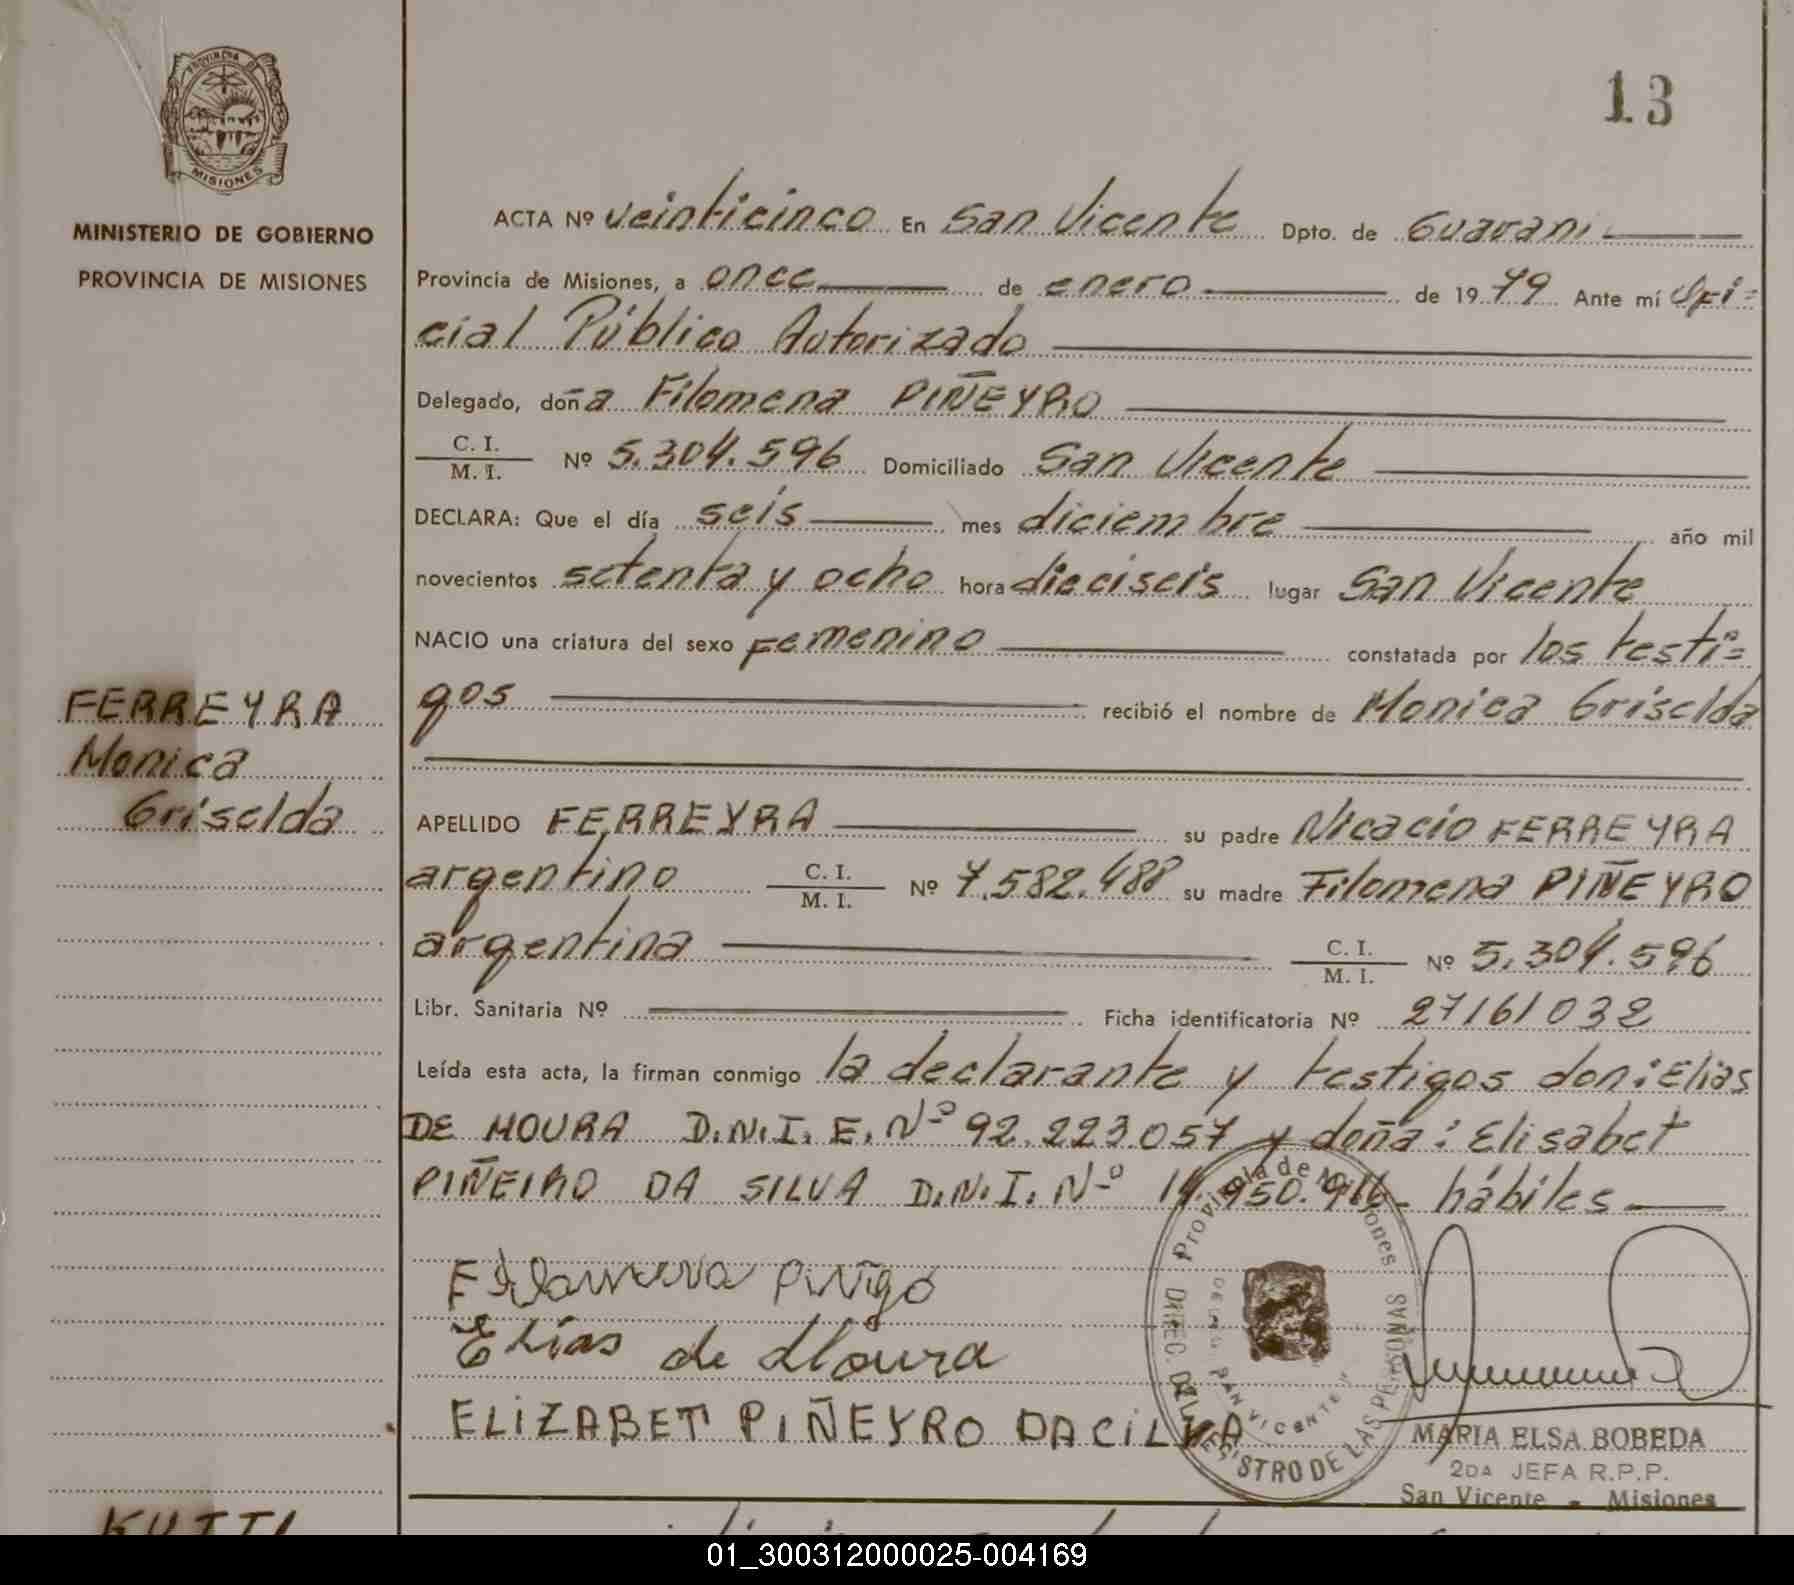 PROVINCIA DE
MISIONES
MINISTERIO DE GOBIERNO
PROVINCIA DE MISIONES
FERREYRA
Monica
Griselda
13
ACTA Nº veinticinco En San Vicente Dpto. de Guarani
Provincia de Misiones, a once de enero de 1979 Ante mí Ofi=
cial Público Autorizado
Delegado, doña Filomena PIÑEYRO
C. I.
M. I. Nº 5.304.596 Domiciliado San Vicente
DECLARA: Que el día seis mes diciembre año mil
novecientos setenta y ocho hora dieciseis lugar San Vicente
NACIO una criatura del sexo Femenino constatada por los testi=
gos recibió el nombre de Monica Griselda
APELLIDO FERREYRA su padre Nicacio FERREYRA
argentino C. I. M. I. Nº 7.582.488 su madre Filomena PIÑEYRO
argentina C. I. M. I. Nº 5.304.596
Libr. Sanitaria Nº Ficha identificatoria Nº 27161032
Leída esta acta, la firman conmigo la declarante y testigos don: Elias
DE MOURA D.N.I.E. Nº 92.223.057 y doña: Elisabet
PIÑEIRO DA SILVA D.N.I. Nº 14.950.916 hábiles
Elias de Moura
ELIZABET PIÑEYRO DACILVA
Provincia de Misiones
DIREC. DEL REGISTRO DE LAS PERSONAS
SAN VICENTE
MARIA ELSA BOBEDA
2DA JEFA R.P.P.
San Vicente - Misiones
01_300312000025-004169